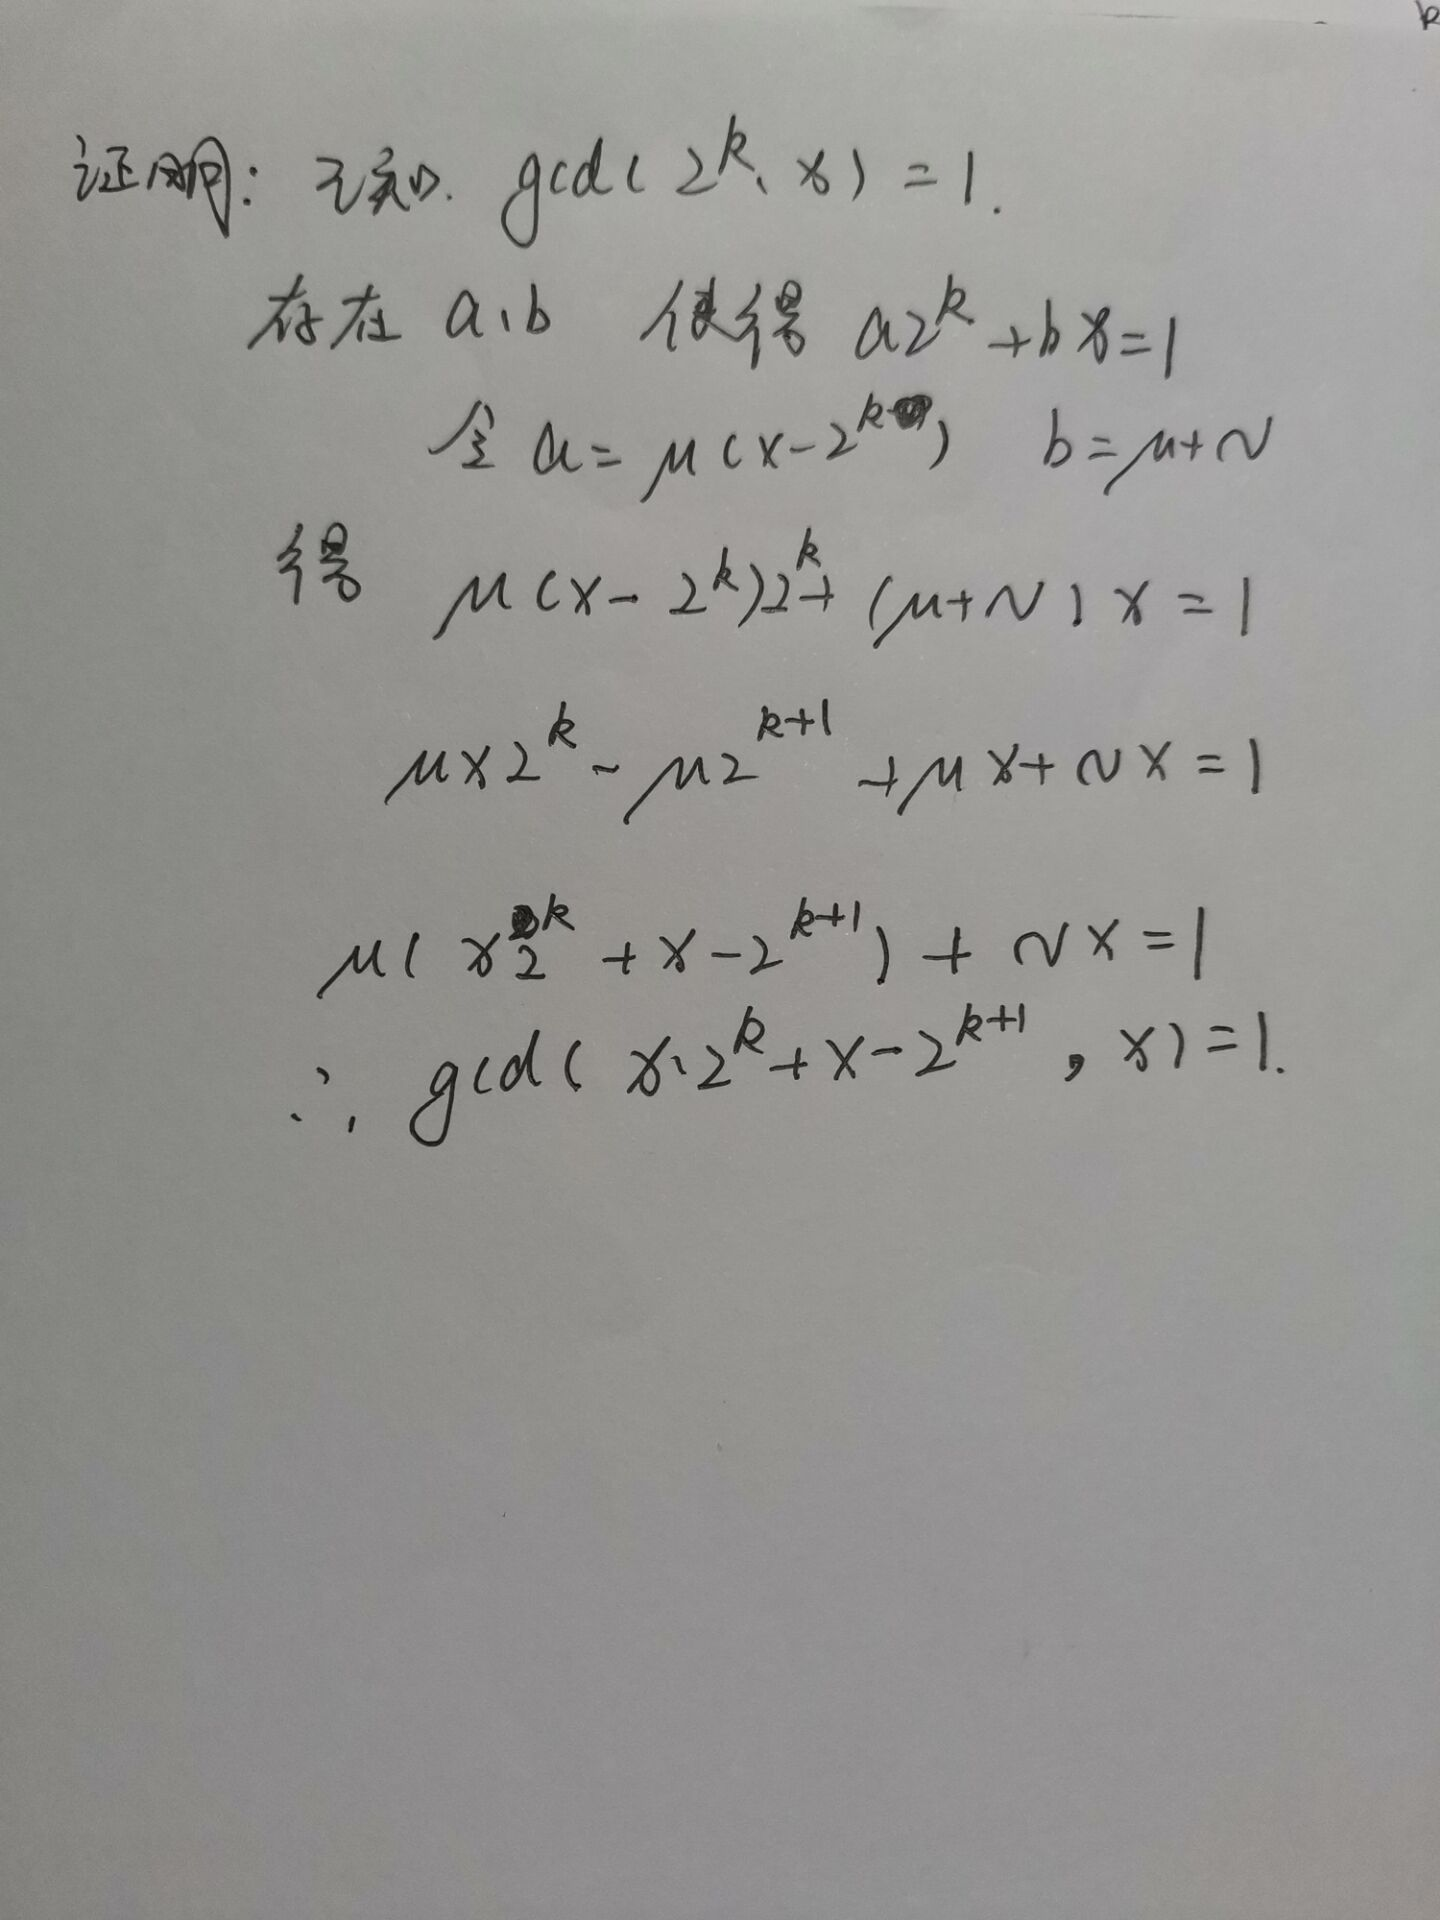 k
证明: 已知. gcd( 2^k、x) = 1.
存在 a、b 使得 a2^k + bx = 1
令 a = μ(x - 2^k) b = μ + ν
得 μ(x - 2^k)2^k + (μ + ν)x = 1
μx2^k - μ2^{k+1} + μx + νx = 1
μ( x2^k + x - 2^{k+1}) + νx = 1
∴ gcd( x·2^k + x - 2^{k+1}, x) = 1.